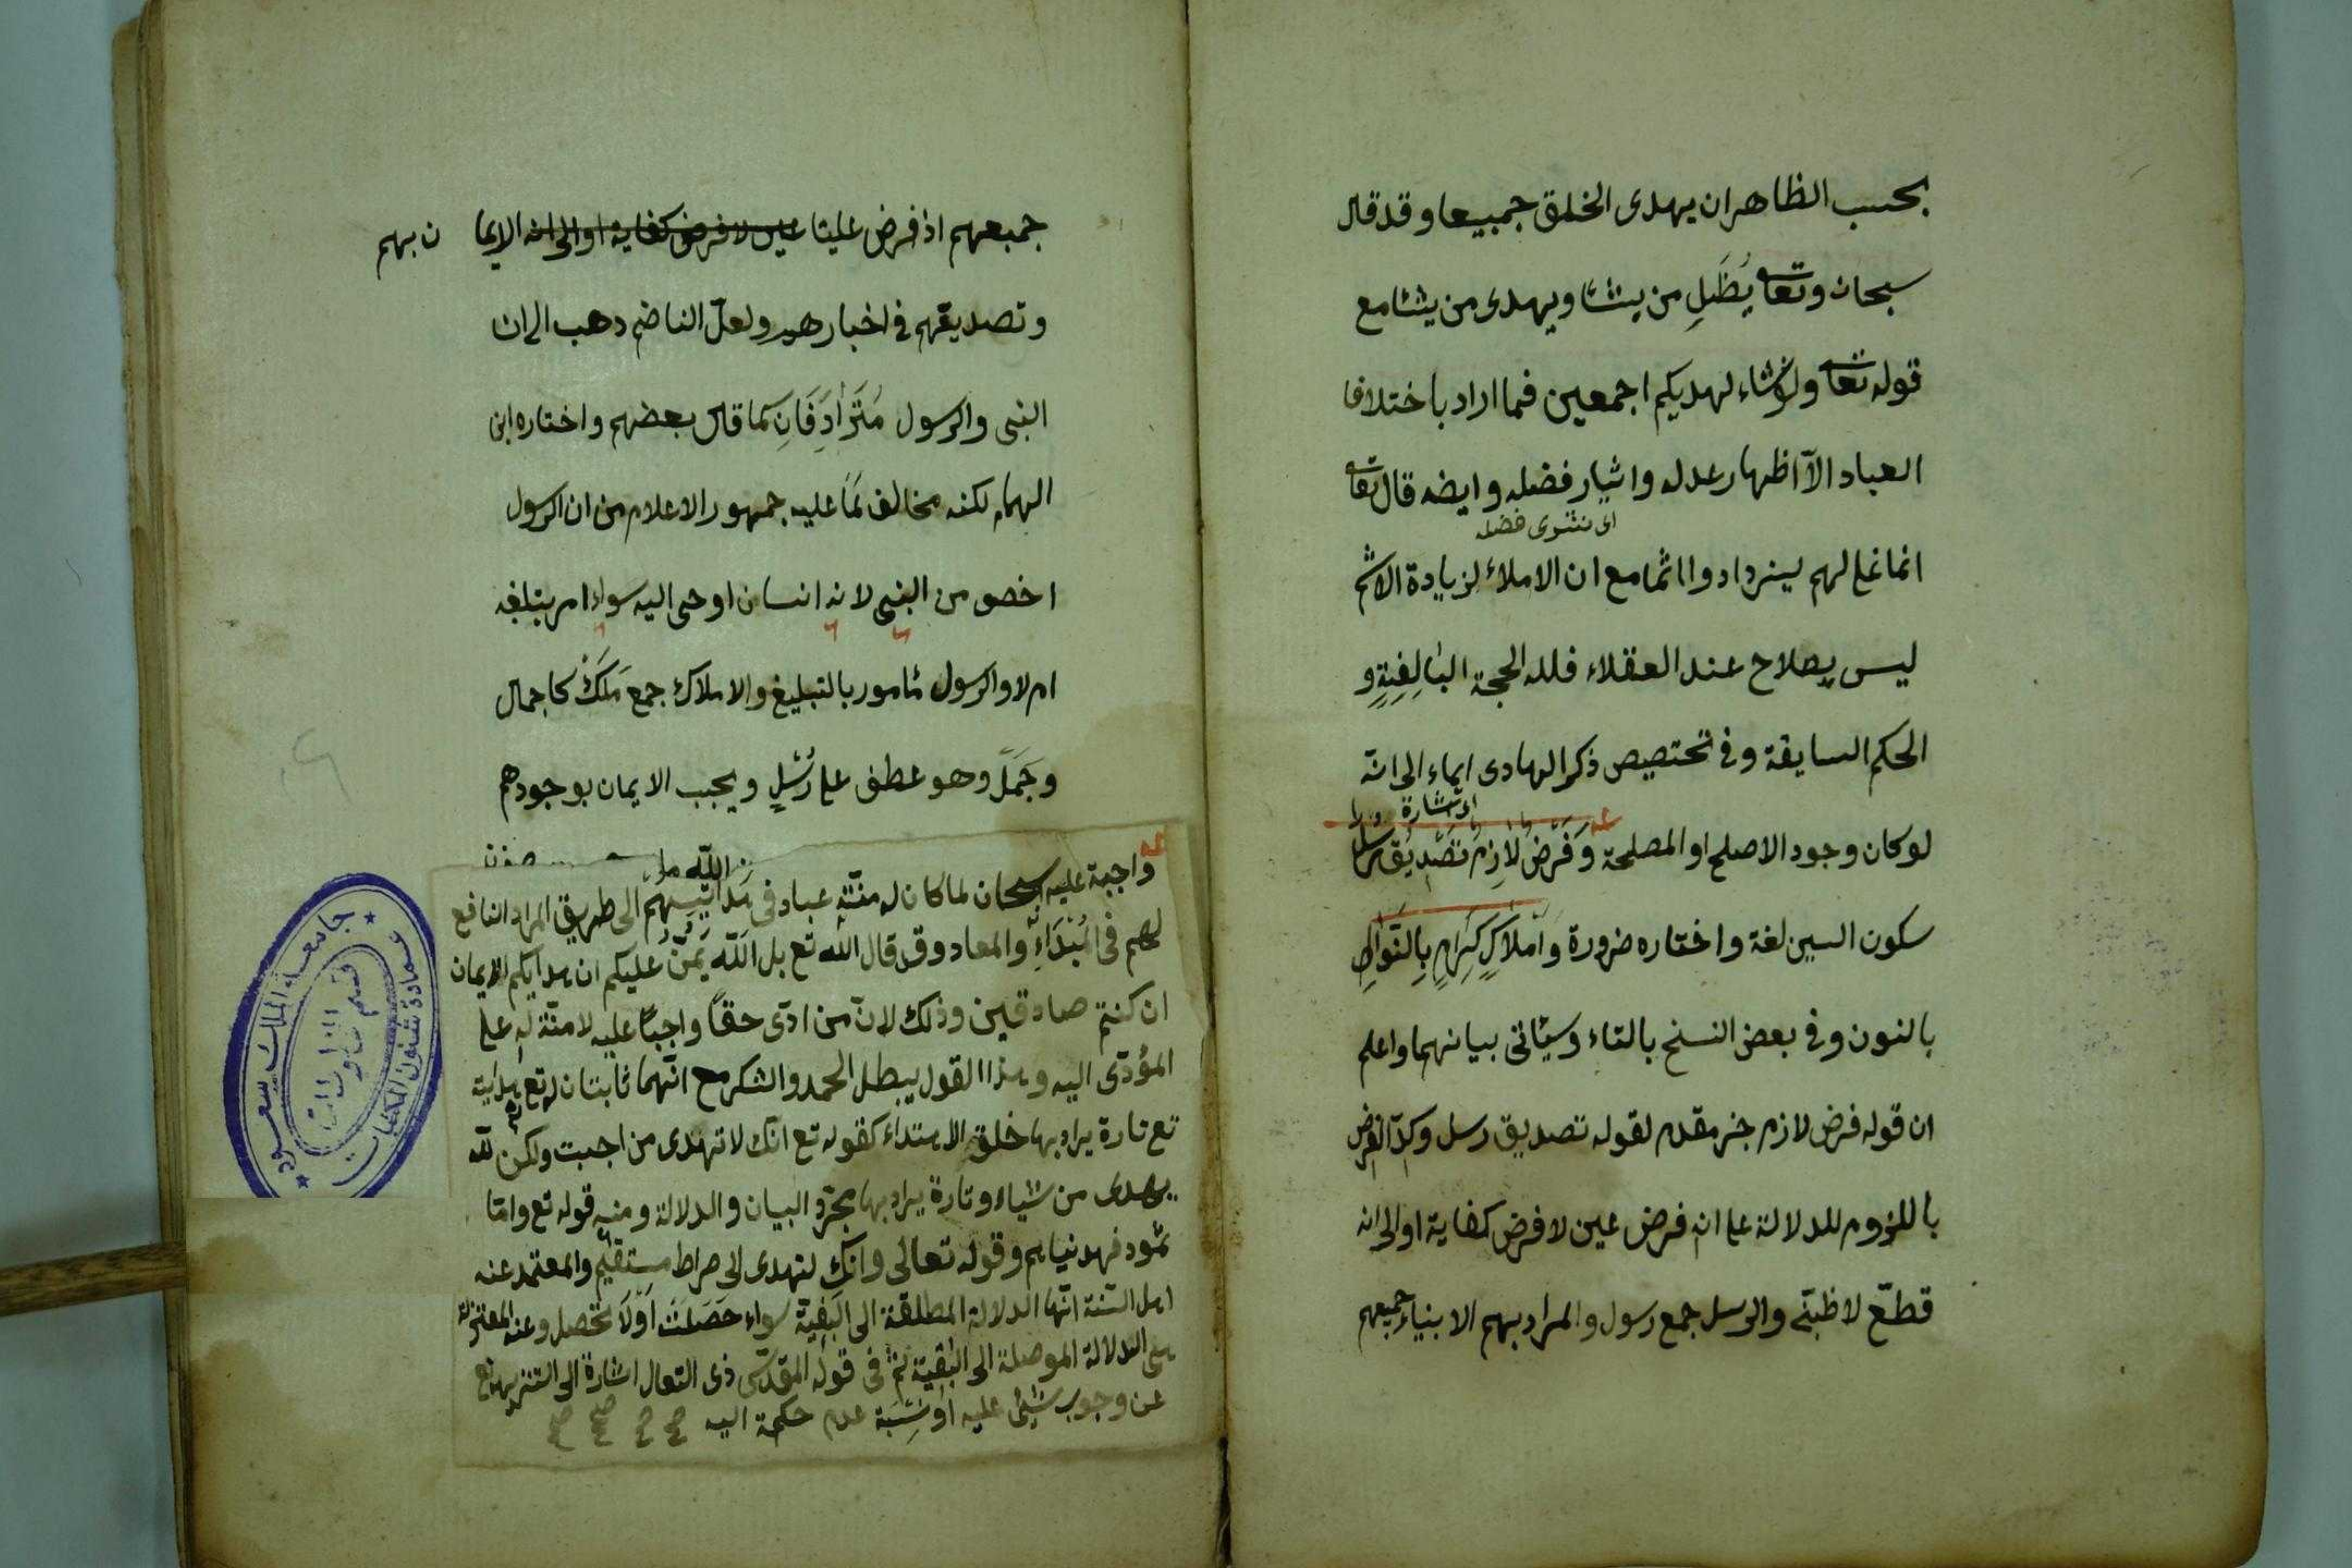 بحسب الظاهر ان يهدى الخلق جميعا وقد قال
سبحان وتعا يُظَلِ من يشا ويهدى من يشا مع
قوله تعا ولو نشاء لهديكم اجمعين فما اراد باختلاف
العباد الآ اظهار عدله واثيار فضله وايضه قال تعا
اى نشرى فضله
انما نملى لهم ليزدادوا اثما مع ان الاملاء لزيادة الاثم
ليس بصلاح عند العقلاء فلله الحجة البالِغِةِ و
الحكم السابقة وفى تختصيص ذكر الهادى ايماء الى انه
اى اشارة
لو كان وجود الاصلح او المصلحة وَفَرْضٌ لَازِمٌ تَصْدِيْقُ رُسْلٍ
سكون السين لغة واختاره ضرورة وَاَمْلَاكٍ كِرَامٍ بِالنَّوَالِ
بالنون وفى بعض النسخ بالتاء وسيئاتى بيانهما واعلم
ان قوله فرض لازم خبر مقدم لقوله تصديق رسل وكدّ الفرض
باللزوم للدلالة على انه فرض عين لا فرض كفاية او الى انه
قطعّى لا ظبنّى والرسل جمع رسول والمراد بهم الابنياء جميعهم
جمبعهم اذ فرض علينا عين لا فرض كفاية او الى انه الايما ن بهم
وتصديقهم فى اخبارهم ولعلّ الناضم دهب الى ان
النبى والرسول مُتَرَادِفَانِ كما قال بعضهم واختاره ابن
الهمام لكنه مخالف لما عليه جمهور الاعلام من ان الرسول
اخص من النبى لانه انسان اوحى اليه سواء امر بتبلغه
ام لا والرسول مأمور بالتبليغ والاملاك جمع مَلَكْ كاجمال
وجَمَلْ وهو عطف على رُسْلٍ ويجب الايمان بوجودهم
واجبة عليه سبحان لما كان له منّة عباد فى هدايتهم الى طريق المراد النافع
لهم فى المُبْدَاءِ والمعاد وقد قال الله تع بل اللّه يَمُنّ عليكم ان هدايكم للايمان
ان كنتم صادقين وذلك لانّ من ادّى حقاً واجباً عليه لا منّة له على
المؤدّى اليه وهذا القول يبطل الحمد والشكر مع انّهما ثابتان له تع هدايت
تع تارة يراد بها خلق الاهتداء كقوله تع انّك لا تهدى من احببت ولكن للّه
يهدى من شياء وتارة يراد بها مجرّد البيان والدلالة ومنه قوله تع وامّا
ثمود فهدنياهم وقوله تعالى وانّك لتهدى الى صراط مستقيم والمعتمد عنه
اهل السّنة انّها الدلالة المطلقة الى البغية سواء حَصَلَتْ اَوْ لَا تحصل وعند المعتزلة
هى الدلالة الموصلة الى البغية ثمّ فى قوله المقدّس ذى التعال اشارة الى التنزيه تع
عن وجوب شئ عليه او نِسْبَة عدم حكمة اليه صح صح صح صح
جامعة الملك سعود
عمادة شئون المكتبات
قسم المخطوطات